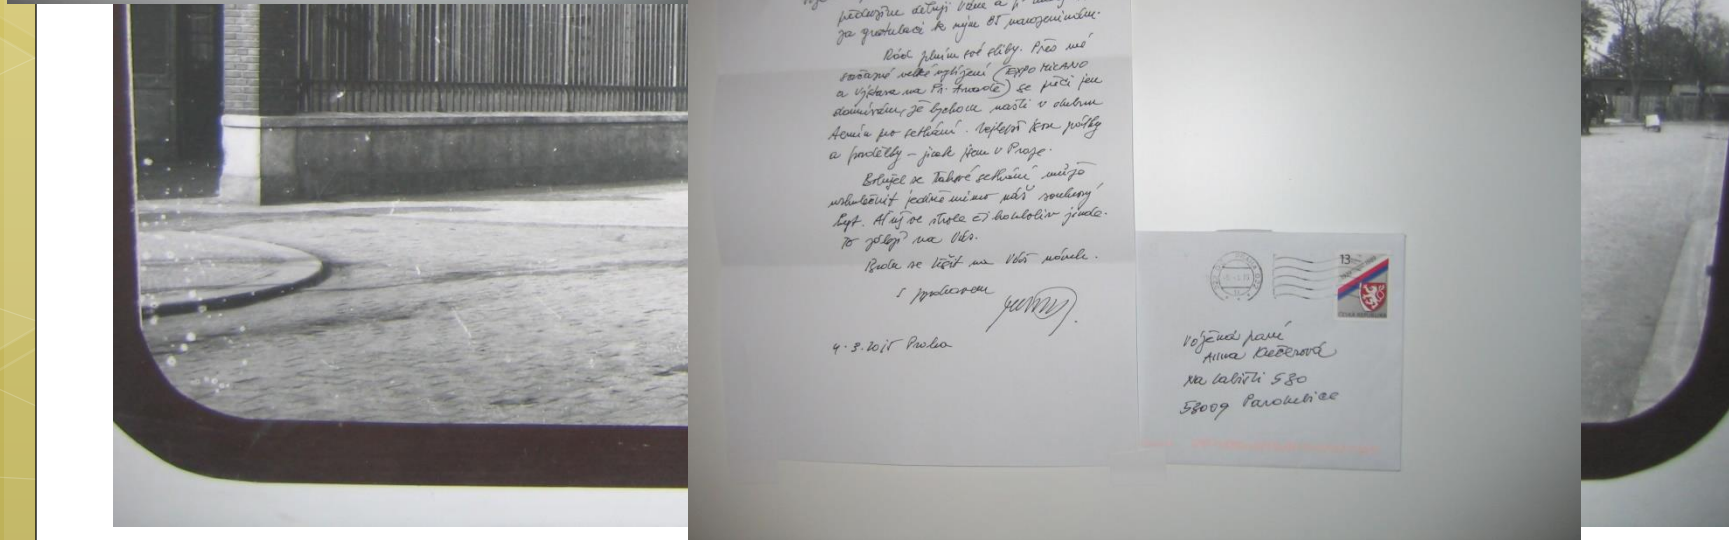 předvším děkuji Vám a
za gratulaci k mým 85 narozeninám.
Rád plním své sliby. Přes mé
současné velké vytížení (EXPO MILANO
a výstava na Pr. Hradě) se přeci jen
domnívám, že bychom našli v dubnu
termín pro setkání. Nejlepší jsou pátky
a pondělky – jinak jsem v Praze.
Bohužel se takové setkání může
uskutečnit jedině mimo náš soukromý
byt. Ať již ve škole či kdekoliv jinde.
To záleží na Vás.
Budu se těšit na Váš návrh.
S pozdravem
4.3.2015 Praha
13
ČESKÁ REPUBLIKA
Vážená paní
Anna
Na Labišti 530
53009 Pardubice